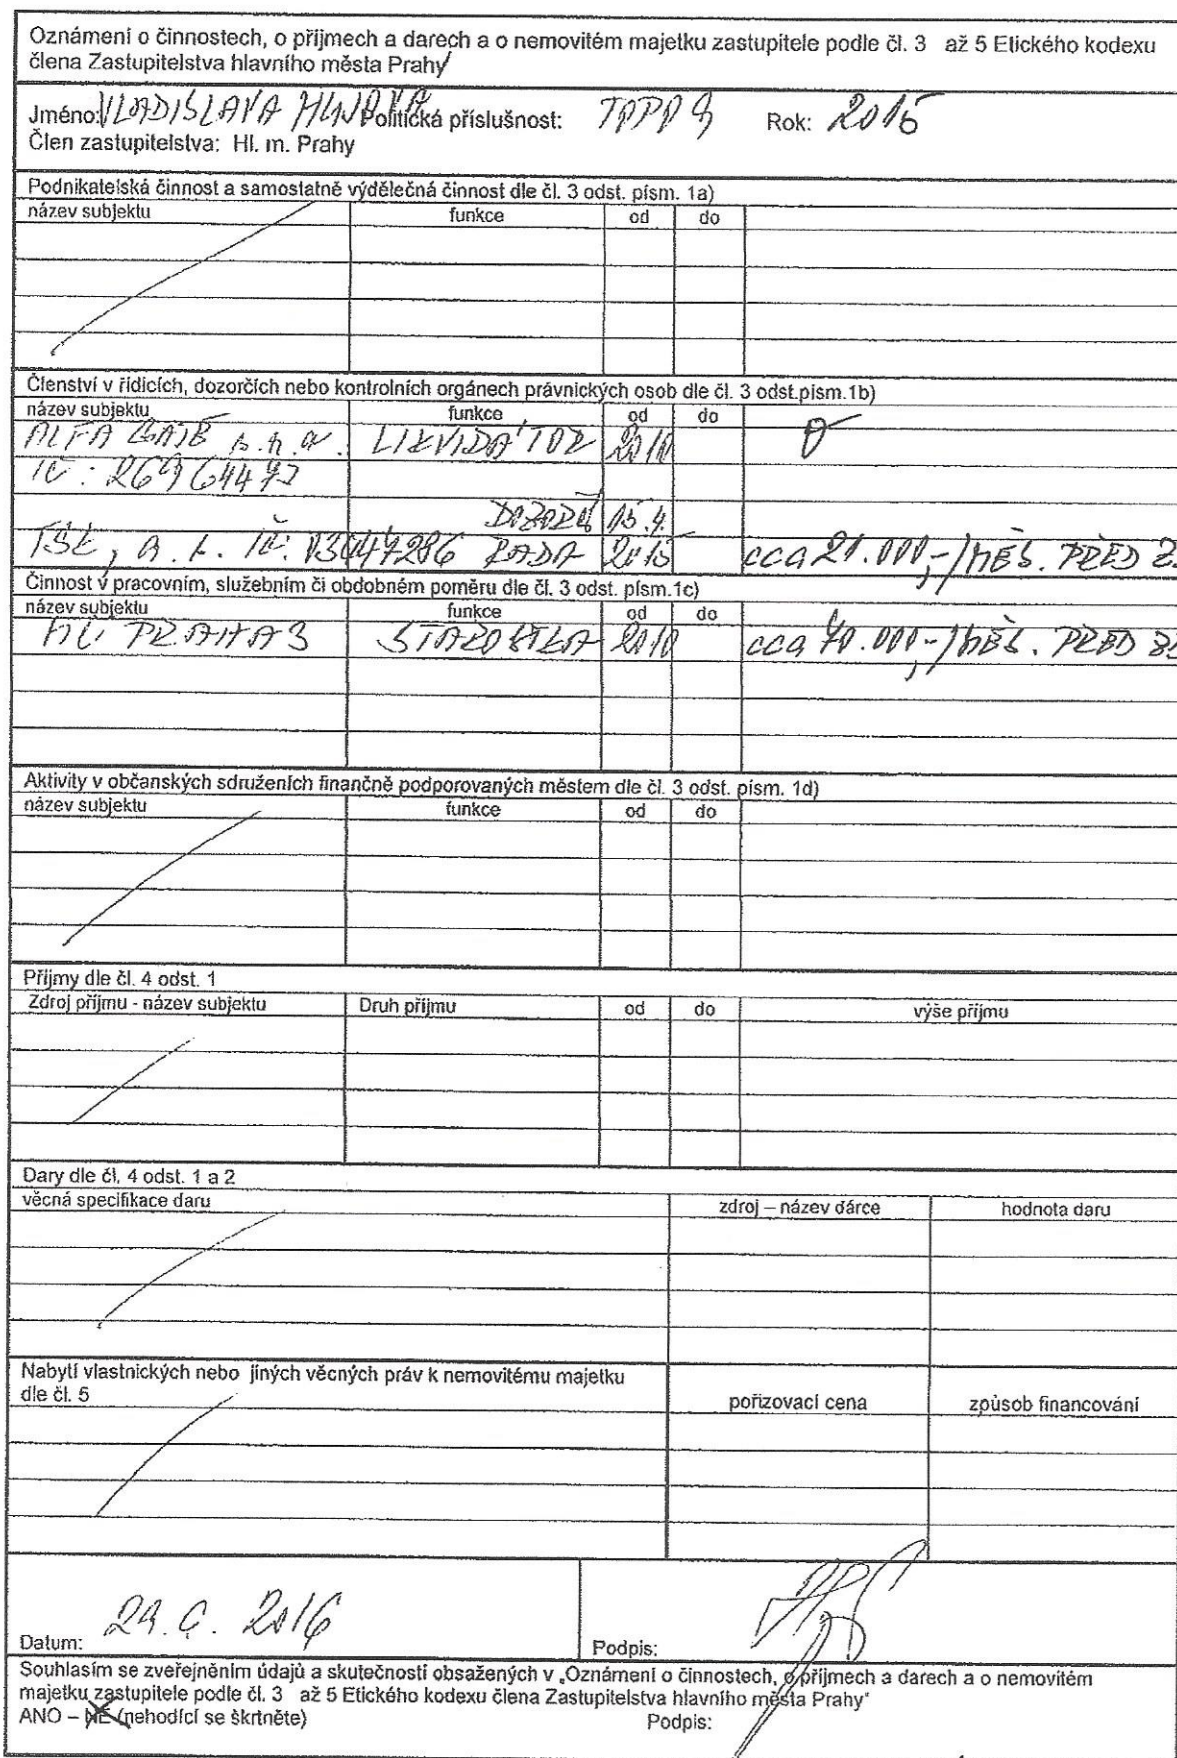 Oznámení o činnostech, o příjmech a darech a o nemovitém majetku zastupitele podle čl. 3 až 5 Etického kodexu
člena Zastupitelstva hlavního města Prahy
Jméno: VLADISLAVA Politická příslušnost: Rok: 2015
Člen zastupitelstva: Hl. m. Prahy
Podnikatelská činnost a samostatně výdělečná činnost dle čl. 3 odst. písm. 1a)
název subjektu funkce od do
Členství v řídicích, dozorčích nebo kontrolních orgánech právnických osob dle čl. 3 odst.písm.1b)
název subjektu funkce od do
ALFA s.r.o. LIKVIDÁTOR 2010
IČ:
DOZORČÍ 15.4.
IČ: 03447286 RADA 2015 cca 21.000,-/MĚS. PŘED
Činnost v pracovním, služebním či obdobném poměru dle čl. 3 odst. písm.1c)
název subjektu funkce od do
MČ PRAHA 3 STAROSTKA 2010 cca 70.000,-/MĚS. PŘED
Aktivity v občanských sdruženích finančně podporovaných městem dle čl. 3 odst. písm. 1d)
název subjektu funkce od do
Příjmy dle čl. 4 odst. 1
Zdroj příjmu - název subjektu Druh příjmu od do výše příjmu
Dary dle čl. 4 odst. 1 a 2
věcná specifikace daru zdroj – název dárce hodnota daru
Nabytí vlastnických nebo jiných věcných práv k nemovitému majetku
dle čl. 5 pořizovací cena způsob financování
Datum: 2016 Podpis:
Souhlasím se zveřejněním údajů a skutečností obsažených v „Oznámení o činnostech, o příjmech a darech a o nemovitém
majetku zastupitele podle čl. 3 až 5 Etického kodexu člena Zastupitelstva hlavního města Prahy“
ANO – NE (nehodící se škrtněte) Podpis: